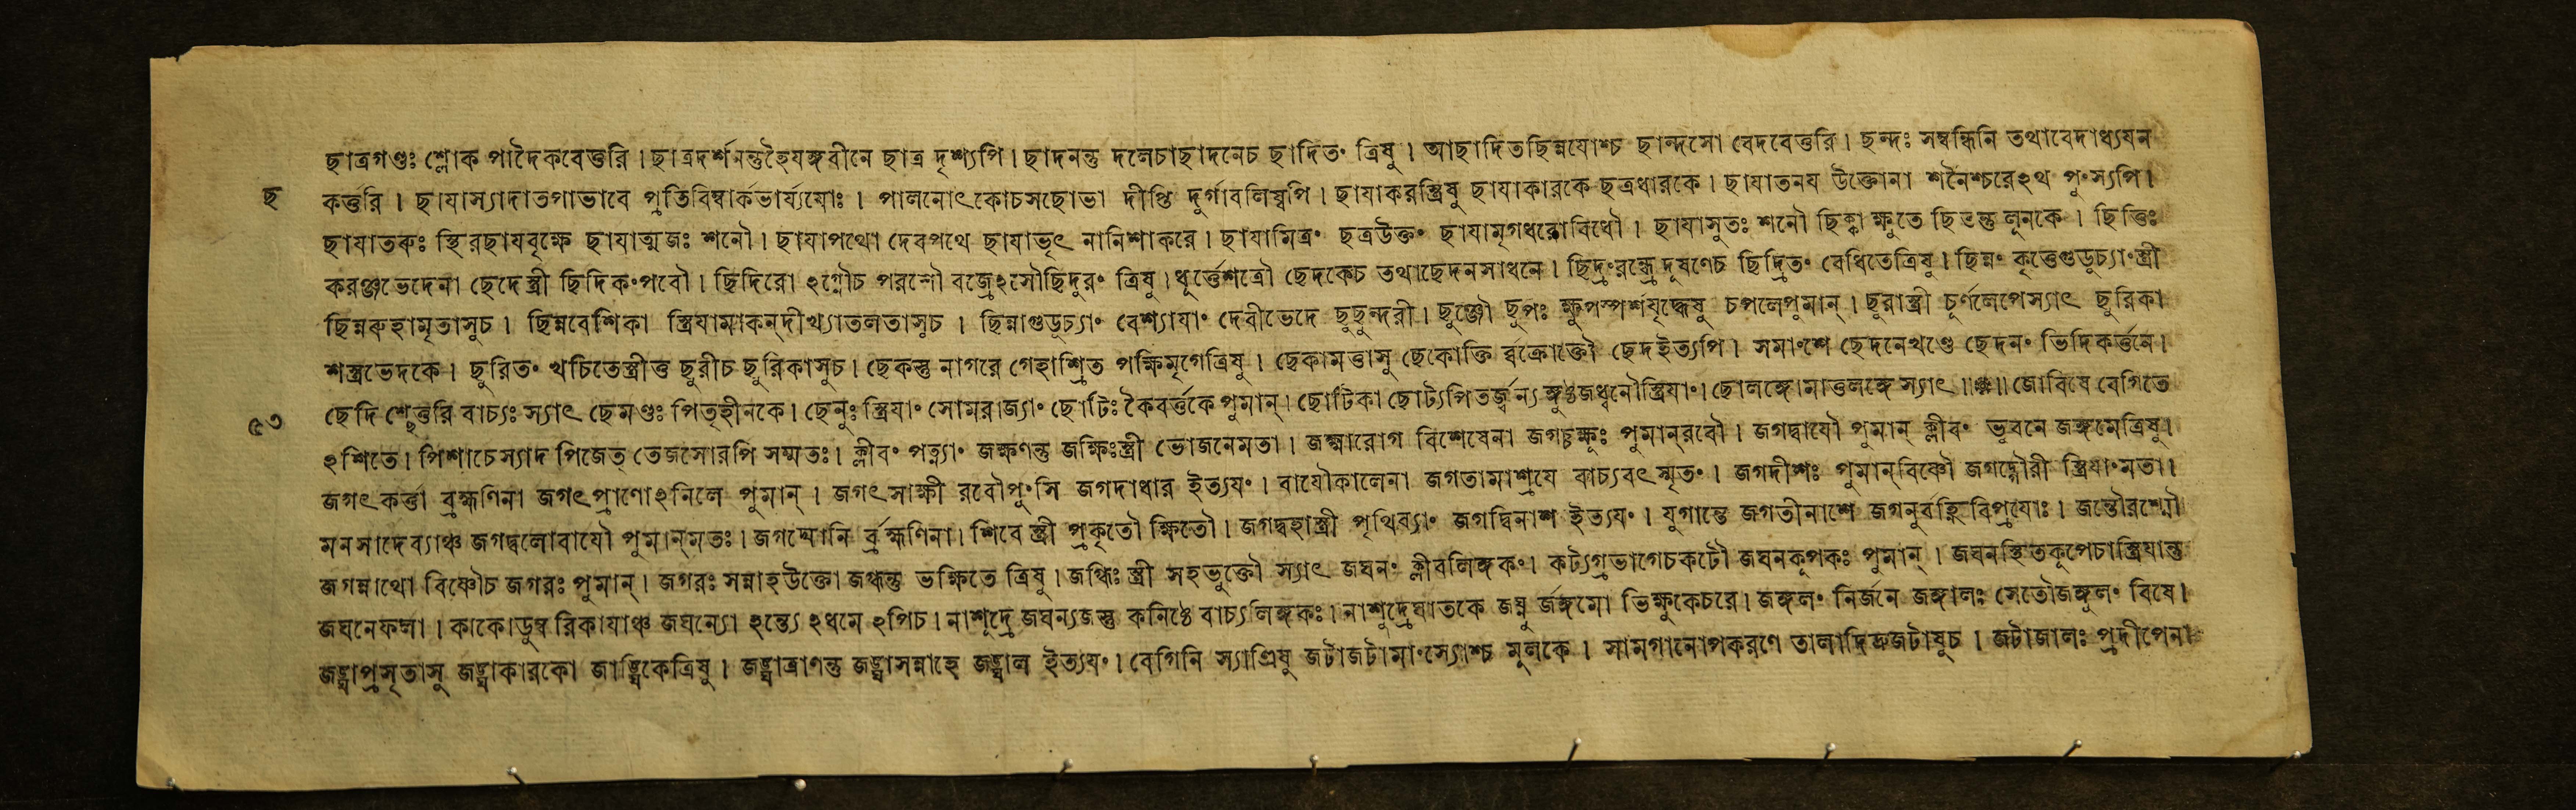 ছাত্রগণ্ডঃ শ্লোক পাদৈকবেত্তরি । ছাত্রদর্শনন্তুহৈযঙ্গবীনে ছাত্র দৃশ্যপি । ছাদনন্তু দলেচাছাদনেচ ছাদিতং ত্রিষু । আছাদিতছিন্নযোশ্চ ছান্দসো বেদবেত্তরি । ছন্দঃ সম্বন্ধিনি তথাবেদাধ্যযন
ছ
কর্ত্তরি । ছাযাস্যাদাতপাভাবে প্রতিবিম্বার্কভার্য্যযোঃ । পালনোৎকোচসছোভা দীপ্তি দুর্গাবলিষ্বপি । ছাযাকরস্ত্রিষু ছাযাকারকে ছত্রধারকে । ছাযাতনয উক্তোনা শনৈশ্চরেঽথ পুংস্যপি ।
ছাযাতরুঃ স্থিরছাযবৃক্ষে ছাযাত্মজঃ শনৌ । ছাযাপথো দেবপথে ছাযাভৃৎ নানিশাকরে । ছাযামিত্রং ছত্রউক্তং ছাযামৃগধরোবিধৌ । ছাযাসুতঃ শনৌ ছিক্কা ক্ষুতে ছিতন্তু লূনকে । ছিত্তিঃ
করঞ্জভেদেনা ছেদে স্ত্রী ছিদিকংপবৌ । ছিদিরো ঽগ্নৌচ পরশৌ বজ্রেঽসৌছিদুরং ত্রিষু । ধূর্ত্তেশত্রৌ ছেদকেচ তথাছেদনসাধনে । ছিদ্রংরন্ধ্রেদূষণেচ ছিদ্রিতং বেধিতেত্রিষু । ছিন্নং কৃত্তেগুডুচ্যাংস্ত্রী
ছিন্নরুহামৃতাসুচ । ছিন্নবেশিকা স্ত্রিযামাকন্দীখ্যাতলতাসুচ । ছিন্নাগুডুচ্যাং বেশ্যাযাং দেবীভেদে ছুছুন্দরী । ছুঞ্জৌ ছুপঃ ক্ষুপস্পর্শযুদ্ধেষু চপলেপুমান্ । ছুরাস্ত্রী চূর্ণলেপেস্যাৎ ছুরিকা
শস্ত্রভেদকে । ছুরিতং খচিতেস্ত্রীত্ত ছুরীচ ছুরিকাসুচ । ছেকস্তু নাগরে গেহাশ্রিত পক্ষিমৃগেত্রিষু । ছেকামত্তাসু ছেকোক্তি র্বক্রোক্তৌ ছেদইত্যপি । সমাংশে ছেদনেখণ্ডে ছেদনং ভিদিকর্ত্তনে ।
৫৩
ছেদি শ্ছেত্তরি বাচ্যঃ স্যাৎ ছেমণ্ডঃ পিতৃহীনকে । ছেনুঃ স্ত্রিযাং সোমরাজ্যাং ছোটিঃ কৈবর্ত্তকে পুমান্ । ছোটিকা ছোট্যপিতর্জ্জন্যঙ্গুষ্ঠজধ্বনৌস্ত্রিযাং । ছোলঙ্গোমাতুলঙ্গে স্যাৎ ॥※॥ জোবিষে বেগিতে
ঽশিতে । পিশাচেস্যাদ পিজেতৃ তেজসোরপি সম্মতঃ । ক্লীবং পত্ন্যাং জক্ষণন্তু জক্ষিঃস্ত্রী ভোজনেমতা । জক্ষ্মারোগ বিশেষেনা জগচ্চক্ষুঃ পুমান্‌রবৌ । জগদ্বাযৌ পুমান্ ক্লীবং ভুবনে জঙ্গমেত্রিষু ।
জগৎ কর্ত্তা ব্রহ্মণিনা জগৎপ্রাণোঽনিলে পুমান্ । জগৎসাক্ষী রবৌপুংসি জগদাধার ইত্যযং । বাযৌকালেনা জগতামাশ্রযে বাচ্যবৎ স্মৃতং । জগদীশঃ পুমান্‌বিষ্ণৌ জগদ্গৌরী স্ত্রিযাংমতা ।
মনসাদেব্যাঞ্চ জগদ্বলোবাযৌ পুমান্‌মতঃ । জগদ্যোনি র্ব্রহ্মণিনা । শিবে স্ত্রী প্রকৃতৌ ক্ষিতৌ । জগদ্বহাস্ত্রী পৃথিব্যাং জগদ্বিনাশ ইত্যযং । যুগান্তে জগতীনাশে জগনুর্বহ্নি বিপ্রযোঃ । জন্তৌরশ্মৌ
জগন্নাথো বিষ্ণৌচ জগরঃ পুমান্ । জগরঃ সন্নাহউক্তো জগ্ধন্তু ভক্ষিতে ত্রিষু । জগ্ধিঃ স্ত্রী সহভুক্তৌ স্যাৎ জঘনং ক্লীবলিঙ্গকং । কট্যগ্রভাগেচকটৌ জঘনকূপকঃ পুমান্ । জঘনস্থিতকূপেচাস্ত্রিযান্তু
জঘনেফলা । কাকোডুম্ব রিকাযাঞ্চ জঘন্যো ঽন্ত্যে ঽধমে ঽপিচ । নাশূদ্রে জঘন্যজস্তু কনিষ্ঠে বাচ্যলিঙ্গকঃ । নাশূদ্রেঘাতকে জঘ্নু র্জঙ্গমো ভিক্ষুকেচরে । জঙ্গলং নির্জনে জঙ্গালঃ সেতৌজঙ্গুলং বিষে ।
জঙ্ঘাপ্রসৃতাসু জঙ্ঘাকারকো জাঙ্ঘিকেত্রিষু । জঙ্ঘাত্রাণন্তু জঙ্ঘাসন্নাহে জঙ্ঘাল ইত্যযং । বেগিনি স্যাত্ত্রিষু জটাজটামাংস্যোশ্চ মূলকে । সামগানোপকরণে জটাষুচ । জটাজালঃ প্রদীপেনা